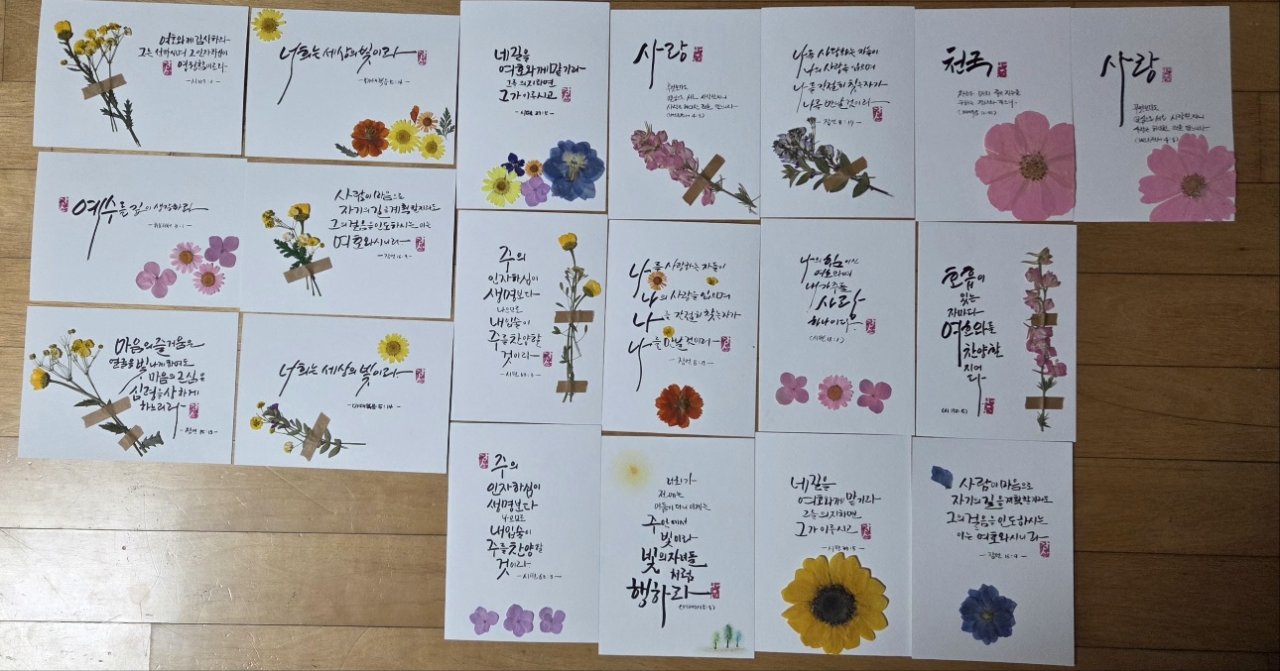 여호와께 감사하라
그는 선하시며 그 인자하심이
영원함이로다
너희는 세상의 빛이라
- 마태복음 5:14 -
네 길을
여호와께 맡기라
그를 의지하면
그가 이루시고
- 시편 37:5 -
사랑
나를 사랑하는 자들이
나의 사랑을 입으며
나를 간절히 찾는 자가
나를 만날 것이라
- 잠언 8:17 -
천국
사랑
예수를 깊이 생각하라
- 히브리서 3:1 -
사람이 마음으로
자기의 길을 계획할지라도
그의 걸음을 인도하시는 이는
여호와시니라
- 잠언 16:9 -
주의
인자하심이
생명보다
나으므로
내 입술이
주를 찬양할
것이라
- 시편 63:3 -
나를 사랑하는 자들이
나의 사랑을 입으며
나를 간절히 찾는 자가
나를 만날 것이며
- 잠언 8:17 -
나의 힘이신
여호와여
내가 주를
사랑
하나이다
(시편 18:1)
호흡이
있는
자마다
여호와를
찬양할
지어
다
마음의 즐거움은
얼굴을 빛나게 하여도
마음의 근심은
심령을 상하게
하느니라
- 잠언 15:13 -
너희는 세상의 빛이라
- 마태복음 5:14 -
주의
인자하심이
생명보다
나으므로
내 입술이
주를 찬양할
것이라
- 시편 63:3 -
너희가
전에는
어둠이더니 이제는
주 안에서
빛이라
빛의 자녀들
처럼
행하라
네 길을
여호와께 맡기라
그를 의지하면
그가 이루시고
- 시편 37:5 -
사람이 마음으로
자기의 길을 계획할지라도
그의 걸음을 인도하시는
이는 여호와시니라
- 잠언 16:9 -